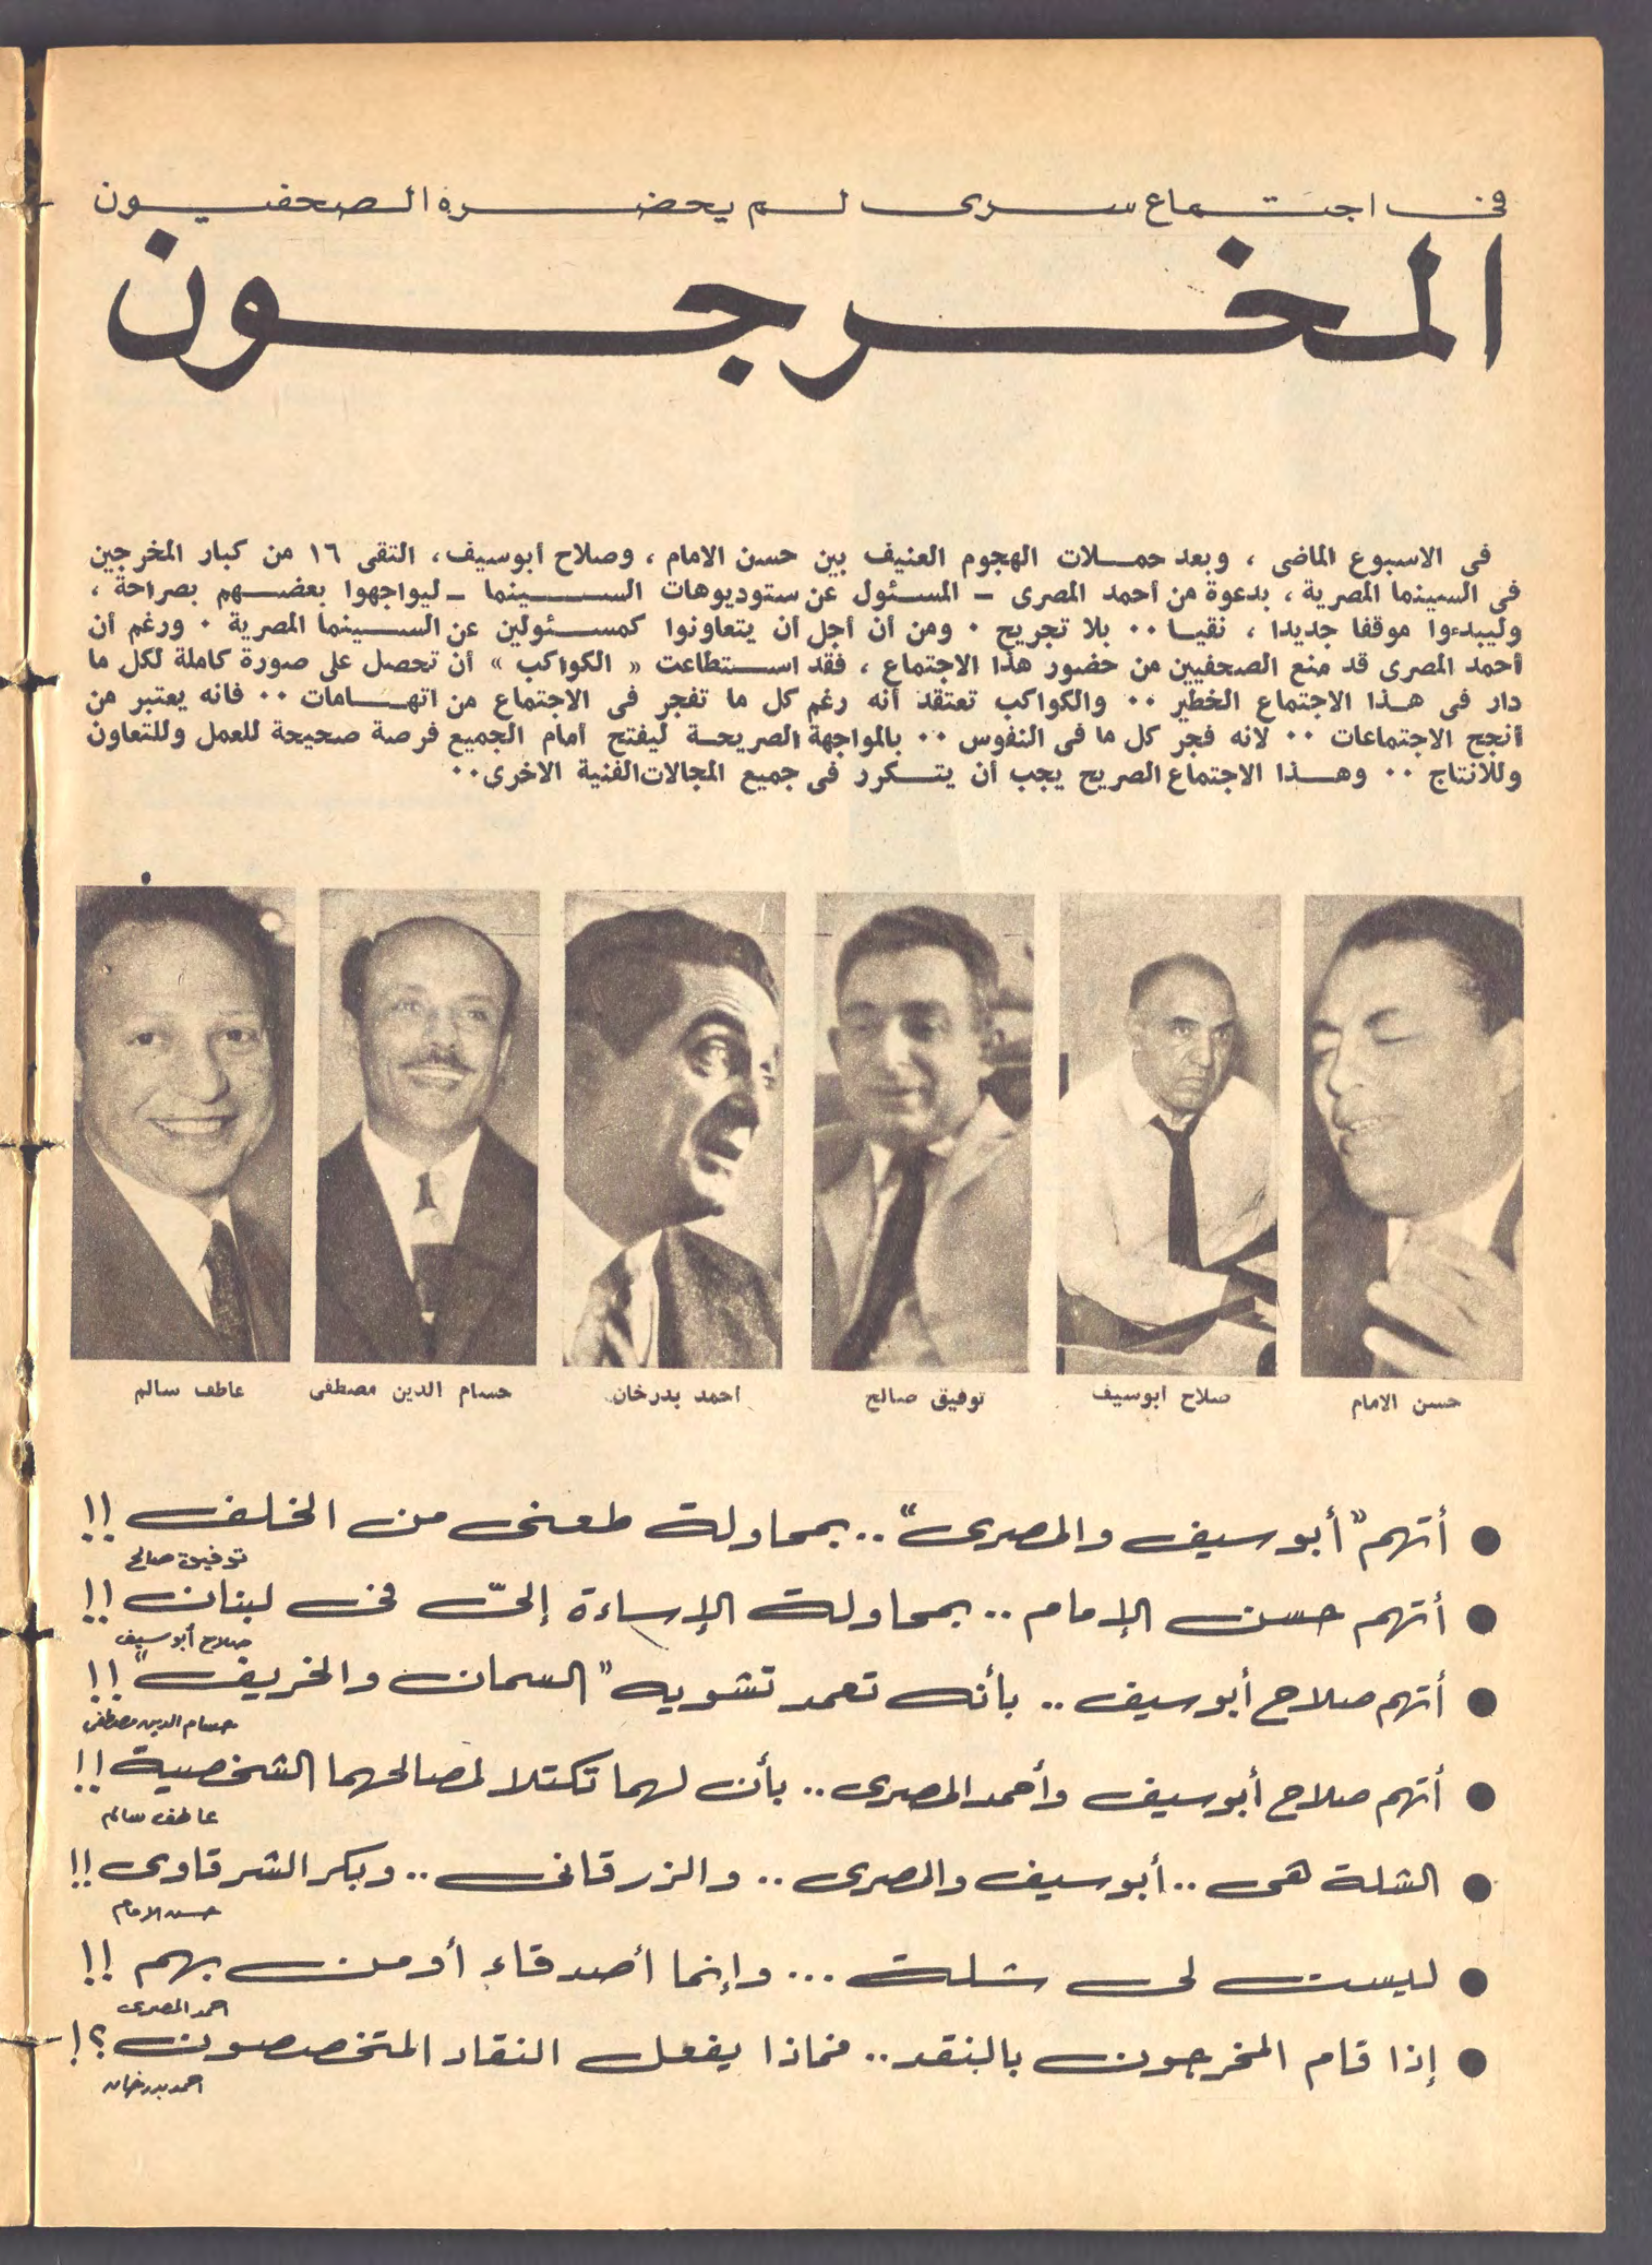 فى اجتماع سرى لم يحضره الصحفيون
المخرجون
فى الاسبوع الماضى ، وبعد حملات الهجوم العنيف بين حسن الامام ، وصلاح أبوسيف، التقى ١٦ من كبار المخرجين
فى السينما المصرية ، بدعوة من أحمد المصرى - المسئول عن ستوديوهات السينما - ليواجهوا بعضهم بصراحة ،
وليبدءوا موقفا جديدا ، نقيا ٠٠ بلا تجريح ٠ ومن أن أجل أن يتعاونوا كمسئولين عن السينما المصرية ٠ ورغم أن
أحمد المصرى قد منع الصحفيين من حضور هذا الاجتماع ، فقد استطاعت « الكواكب » أن تحصل على صورة كاملة لكل ما
دار فى هذا الاجتماع الخطير ٠٠ والكواكب تعتقد أنه رغم كل ما تفجر فى الاجتماع من اتهامات ٠٠ فانه يعتبر من
أنجح الاجتماعات ٠٠ لانه فجر كل ما فى النفوس ٠٠ بالمواجهة الصريحة ليفتح أمام الجميع فرصة صحيحة للعمل وللتعاون
وللانتاج ٠٠ وهذا الاجتماع الصريح يجب أن يتكرر فى جميع المجالات الفنية الاخرى٠٠
حسن الامام
صلاح ابوسيف
توفيق صالح
احمد بدرخان
حسام الدين مصطفى
عاطف سالم
● أتهم "أبو سيف والمصرى" .. بمحاولة طعنى من الخلف !!
توفيق صالح
● أتهم حسن الإمام .. بمحاولة الإساءة إلىّ فى لبنان !!
صلاح أبو سيف
● أتهم صلاح أبو سيف .. بأنه تعمد تشويه "السمان والخريف" !!
حسام الدين مصطفى
● أتهم صلاح أبو سيف وأحمد المصرى .. بأن لهما تكتلا لمصالحهما الشخصية !!
عاطف سالم
● الشلة هى .. أبو سيف والمصرى .. والزرقانى .. وبكر الشرقاوى !!
حسن الامام
● ليست لى شلة ... وإنما أصدقاء أومن بهم !!
احمد المصرى
● إذا قام المخرجون بالنقد .. فماذا يفعل النقاد المتخصصون ؟!
احمد بدرخان